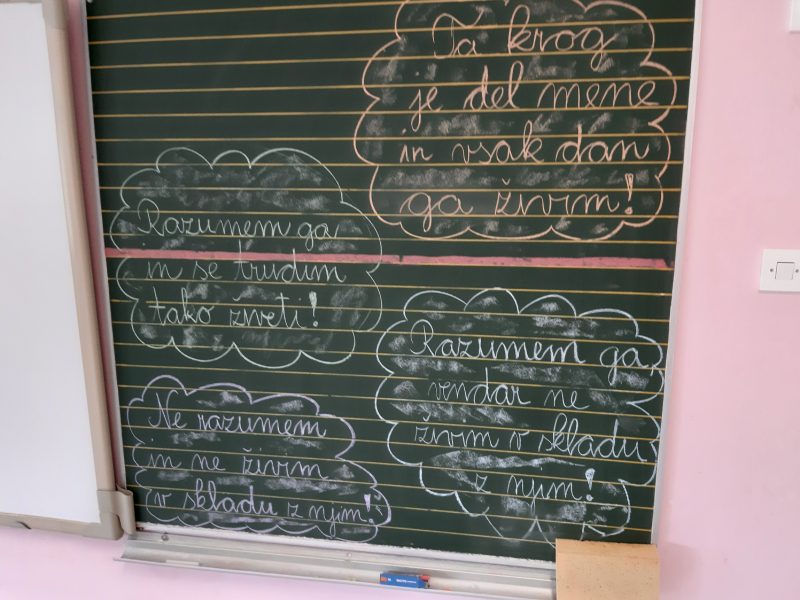 Ta krog
je del mene
in vsak dan
ga živim!
Razumem ga
in se trudim
tako živeti!
Razumem ga,
vendar ne
živim v skladu
z njim!
Ne razumem
in ne živim
v skladu z njim!